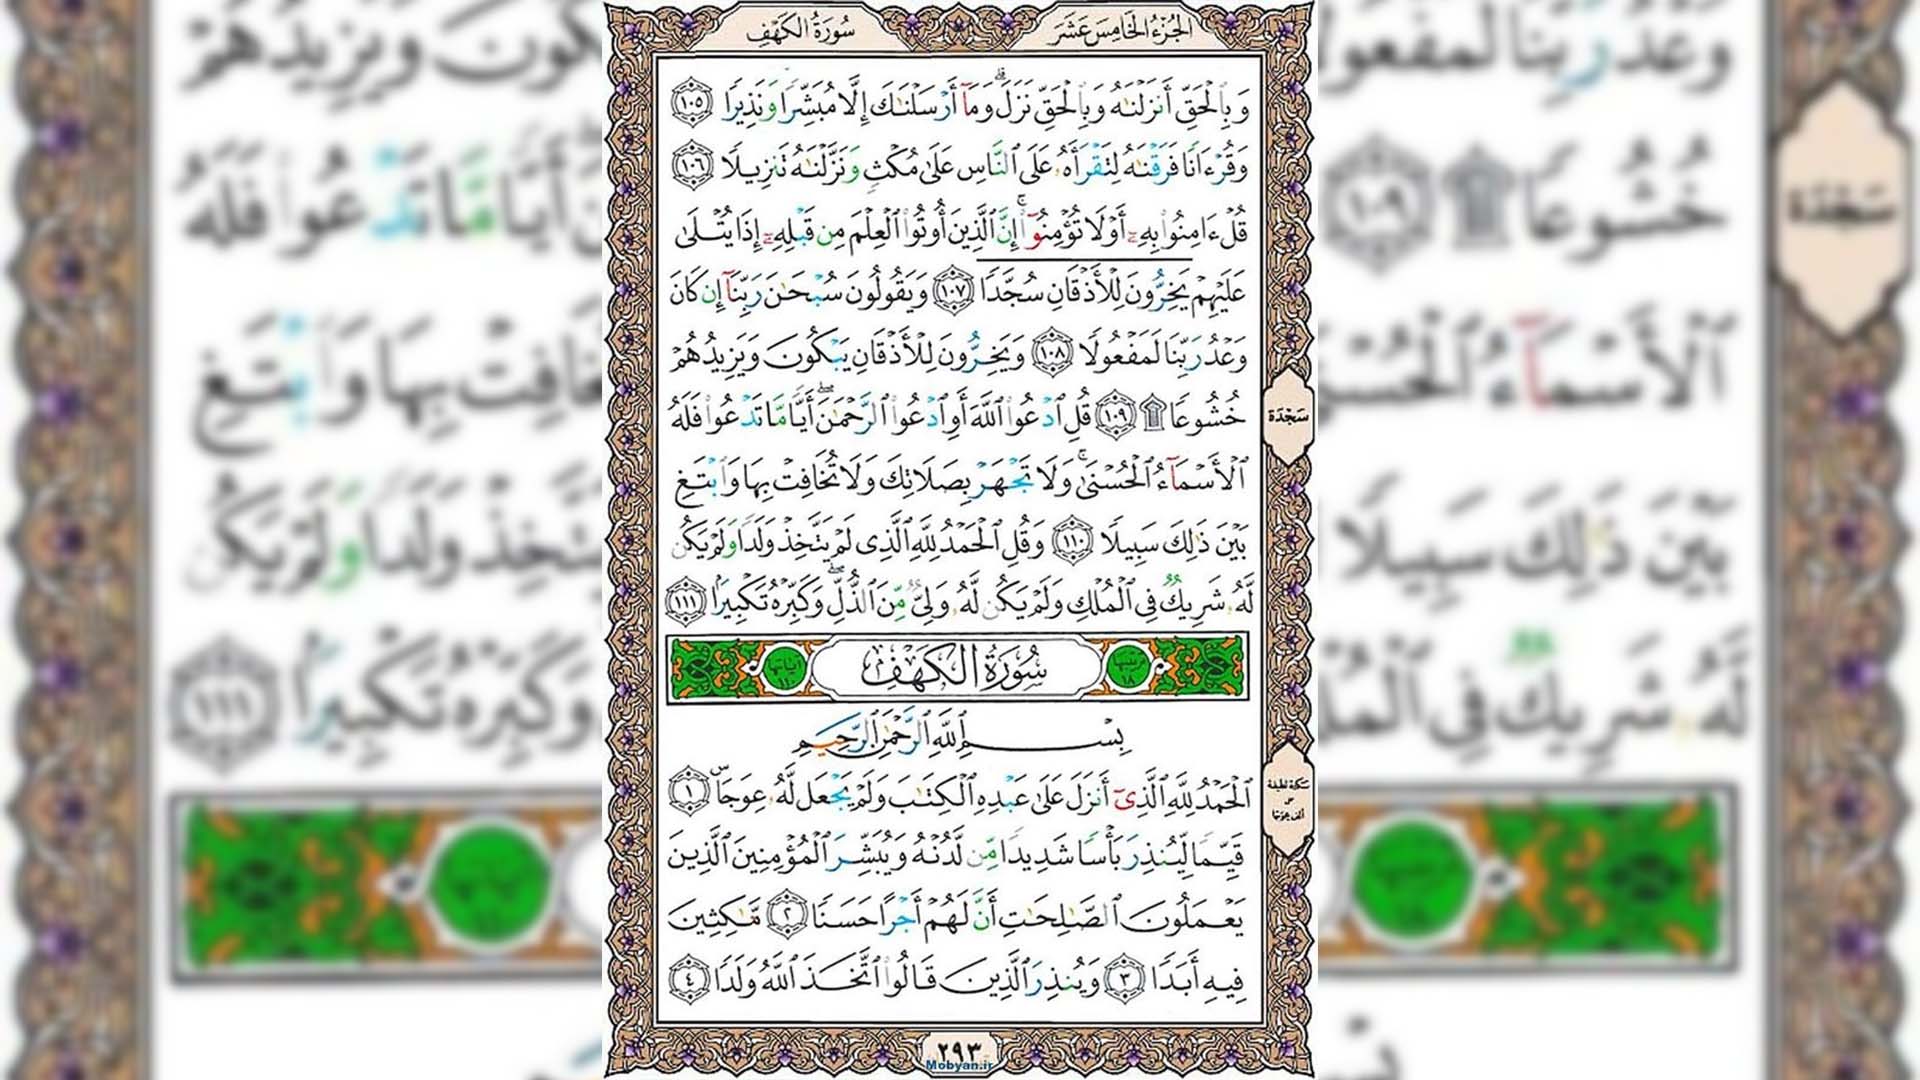 الجُزْءُ الخَامِسَ عَشَرَ
سُورَةُ الكَهْفِ
وَبِٱلْحَقِّ أَنزَلْنَـٰهُ وَبِٱلْحَقِّ نَزَلَ ۗ وَمَآ أَرْسَلْنَـٰكَ إِلَّا مُبَشِّرًا وَنَذِيرًا ١٠٥
وَقُرْءَانًا فَرَقْنَـٰهُ لِتَقْرَأَهُۥ عَلَى ٱلنَّاسِ عَلَىٰ مُكْثٍ وَنَزَّلْنَـٰهُ تَنزِيلًا ١٠٦
قُلْ ءَامِنُوا۟ بِهِۦٓ أَوْ لَا تُؤْمِنُوٓا۟ ۚ إِنَّ ٱلَّذِينَ أُوتُوا۟ ٱلْعِلْمَ مِن قَبْلِهِۦٓ إِذَا يُتْلَىٰ
عَلَيْهِمْ يَخِرُّونَ لِلْأَذْقَانِ سُجَّدًا ١٠٧ وَيَقُولُونَ سُبْحَـٰنَ رَبِّنَآ إِن كَانَ
وَعْدُ رَبِّنَا لَمَفْعُولًا ١٠٨ وَيَخِرُّونَ لِلْأَذْقَانِ يَبْكُونَ وَيَزِيدُهُمْ
خُشُوعًا ۩ ١٠٩ قُلِ ٱدْعُوا۟ ٱللَّهَ أَوِ ٱدْعُوا۟ ٱلرَّحْمَـٰنَ ۖ أَيًّا مَّا تَدْعُوا۟ فَلَهُ
سَجْدَة
ٱلْأَسْمَآءُ ٱلْحُسْنَىٰ ۚ وَلَا تَجْهَرْ بِصَلَاتِكَ وَلَا تُخَافِتْ بِهَا وَٱبْتَغِ
بَيْنَ ذَٰلِكَ سَبِيلًا ١١٠ وَقُلِ ٱلْحَمْدُ لِلَّهِ ٱلَّذِى لَمْ يَتَّخِذْ وَلَدًا وَلَمْ يَكُن
لَّهُۥ شَرِيكٌ فِى ٱلْمُلْكِ وَلَمْ يَكُن لَّهُۥ وَلِىٌّ مِّنَ ٱلذُّلِّ ۖ وَكَبِّرْهُ تَكْبِيرًۢا ١١١
سُورَةُ الكَهْفِ
بِسْمِ ٱللَّهِ ٱلرَّحْمَـٰنِ ٱلرَّحِيمِ
ٱلْحَمْدُ لِلَّهِ ٱلَّذِىٓ أَنزَلَ عَلَىٰ عَبْدِهِ ٱلْكِتَـٰبَ وَلَمْ يَجْعَل لَّهُۥ عِوَجَاۜ ١
قَيِّمًا لِّيُنذِرَ بَأْسًا شَدِيدًا مِّن لَّدُنْهُ وَيُبَشِّرَ ٱلْمُؤْمِنِينَ ٱلَّذِينَ
يَعْمَلُونَ ٱلصَّـٰلِحَـٰتِ أَنَّ لَهُمْ أَجْرًا حَسَنًا ٢ مَّـٰكِثِينَ
فِيهِ أَبَدًا ٣ وَيُنذِرَ ٱلَّذِينَ قَالُوا۟ ٱتَّخَذَ ٱللَّهُ وَلَدًا ٤
٢٩٣
Mobyan.ir